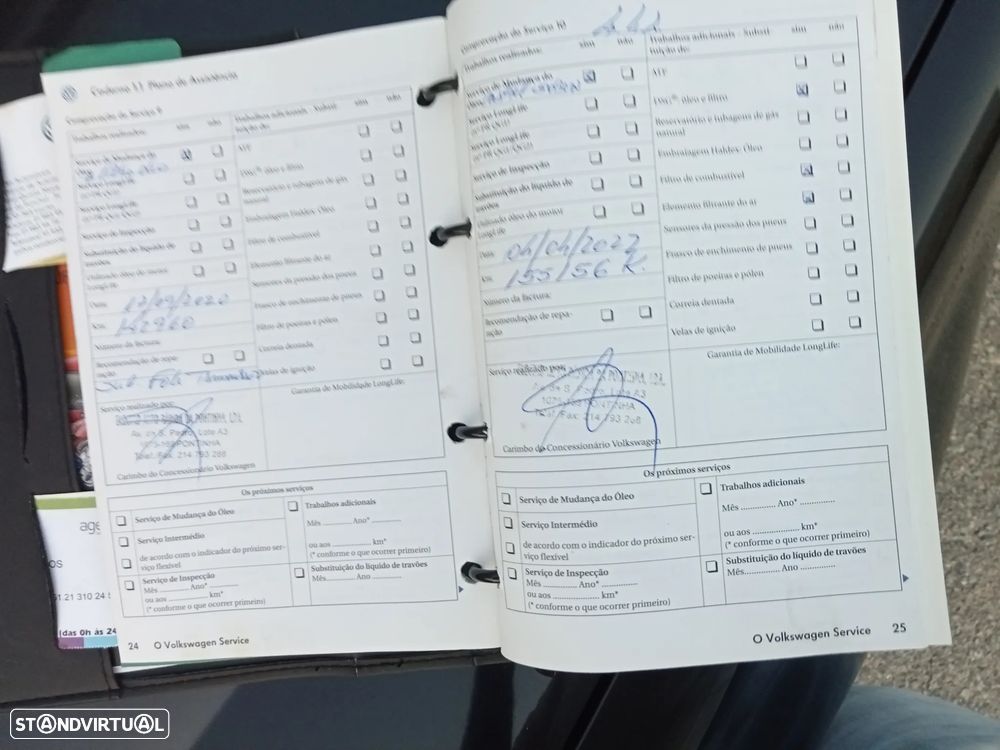 Caderno 1.1 Plano de Assistência
Comprovação de Serviço 9
Trabalhos realizados: sim não
Trabalhos adicionais - Substituição de: sim não
Serviço de Mudança do Óleo
Serviço LongLife
Serviço LongLife
Serviço de Inspecção
Substituição do líquido de travões
Utilizado óleo do motor LongLife
Data: 17/09/2020
Km: 142960
Número da factura:
Recomendação de reparação
ATF
DSG® óleo e filtro
Reservatório e tubagens de gás natural
Embraiagem Haldex: Óleo
Filtro de combustível
Elemento filtrante do ar
Sensores da pressão dos pneus
Frasco de enchimento de pneus
Filtro de poeiras e pólen
Correia dentada
Velas de ignição
Serviço realizado por:
Av. da S. Pedro, Lote A3
PONTINHA
Telef./Fax: 214 793 288
Carimbo do Concessionário Volkswagen
Garantia de Mobilidade LongLife:
Os próximos serviços
Serviço de Mudança do Óleo
Serviço Intermédio
de acordo com o indicador do próximo serviço flexível
Serviço de Inspecção
Mês ............ Ano* ..............
ou aos .................. km*
(* conforme o que ocorrer primeiro)
Trabalhos adicionais
Mês ............ Ano* ..............
ou aos .................. km*
(* conforme o que ocorrer primeiro)
Substituição do líquido de travões
Mês............... Ano ..............
24 O Volkswagen Service
Comprovação de Serviço 10
Trabalhos realizados: sim não
Trabalhos adicionais - Substituição de: sim não
Serviço de Mudança do Óleo
Serviço LongLife
Serviço LongLife
Serviço de Inspecção
Substituição do líquido de travões
Utilizado óleo do motor LongLife
Data: 04/04/2022
Km: 155156 K.
Número da factura:
Recomendação de reparação
ATF
DSG® óleo e filtro
Reservatório e tubagens de gás natural
Embraiagem Haldex: Óleo
Filtro de combustível
Elemento filtrante do ar
Sensores da pressão dos pneus
Frasco de enchimento de pneus
Filtro de poeiras e pólen
Correia dentada
Velas de ignição
Serviço realizado por:
PONTINHA
Carimbo do Concessionário Volkswagen
Garantia de Mobilidade LongLife:
Os próximos serviços
Serviço de Mudança do Óleo
Serviço Intermédio
de acordo com o indicador do próximo serviço flexível
Serviço de Inspecção
Mês ............ Ano* ..............
ou aos .................. km*
(* conforme o que ocorrer primeiro)
Trabalhos adicionais
Mês .............. Ano* ..............
ou aos .................. km*
(* conforme o que ocorrer primeiro)
Substituição do líquido de travões
Mês............... Ano ..............
O Volkswagen Service 25
age
os
21 310 24
(das 0h às 24
STANDVIRTUAL